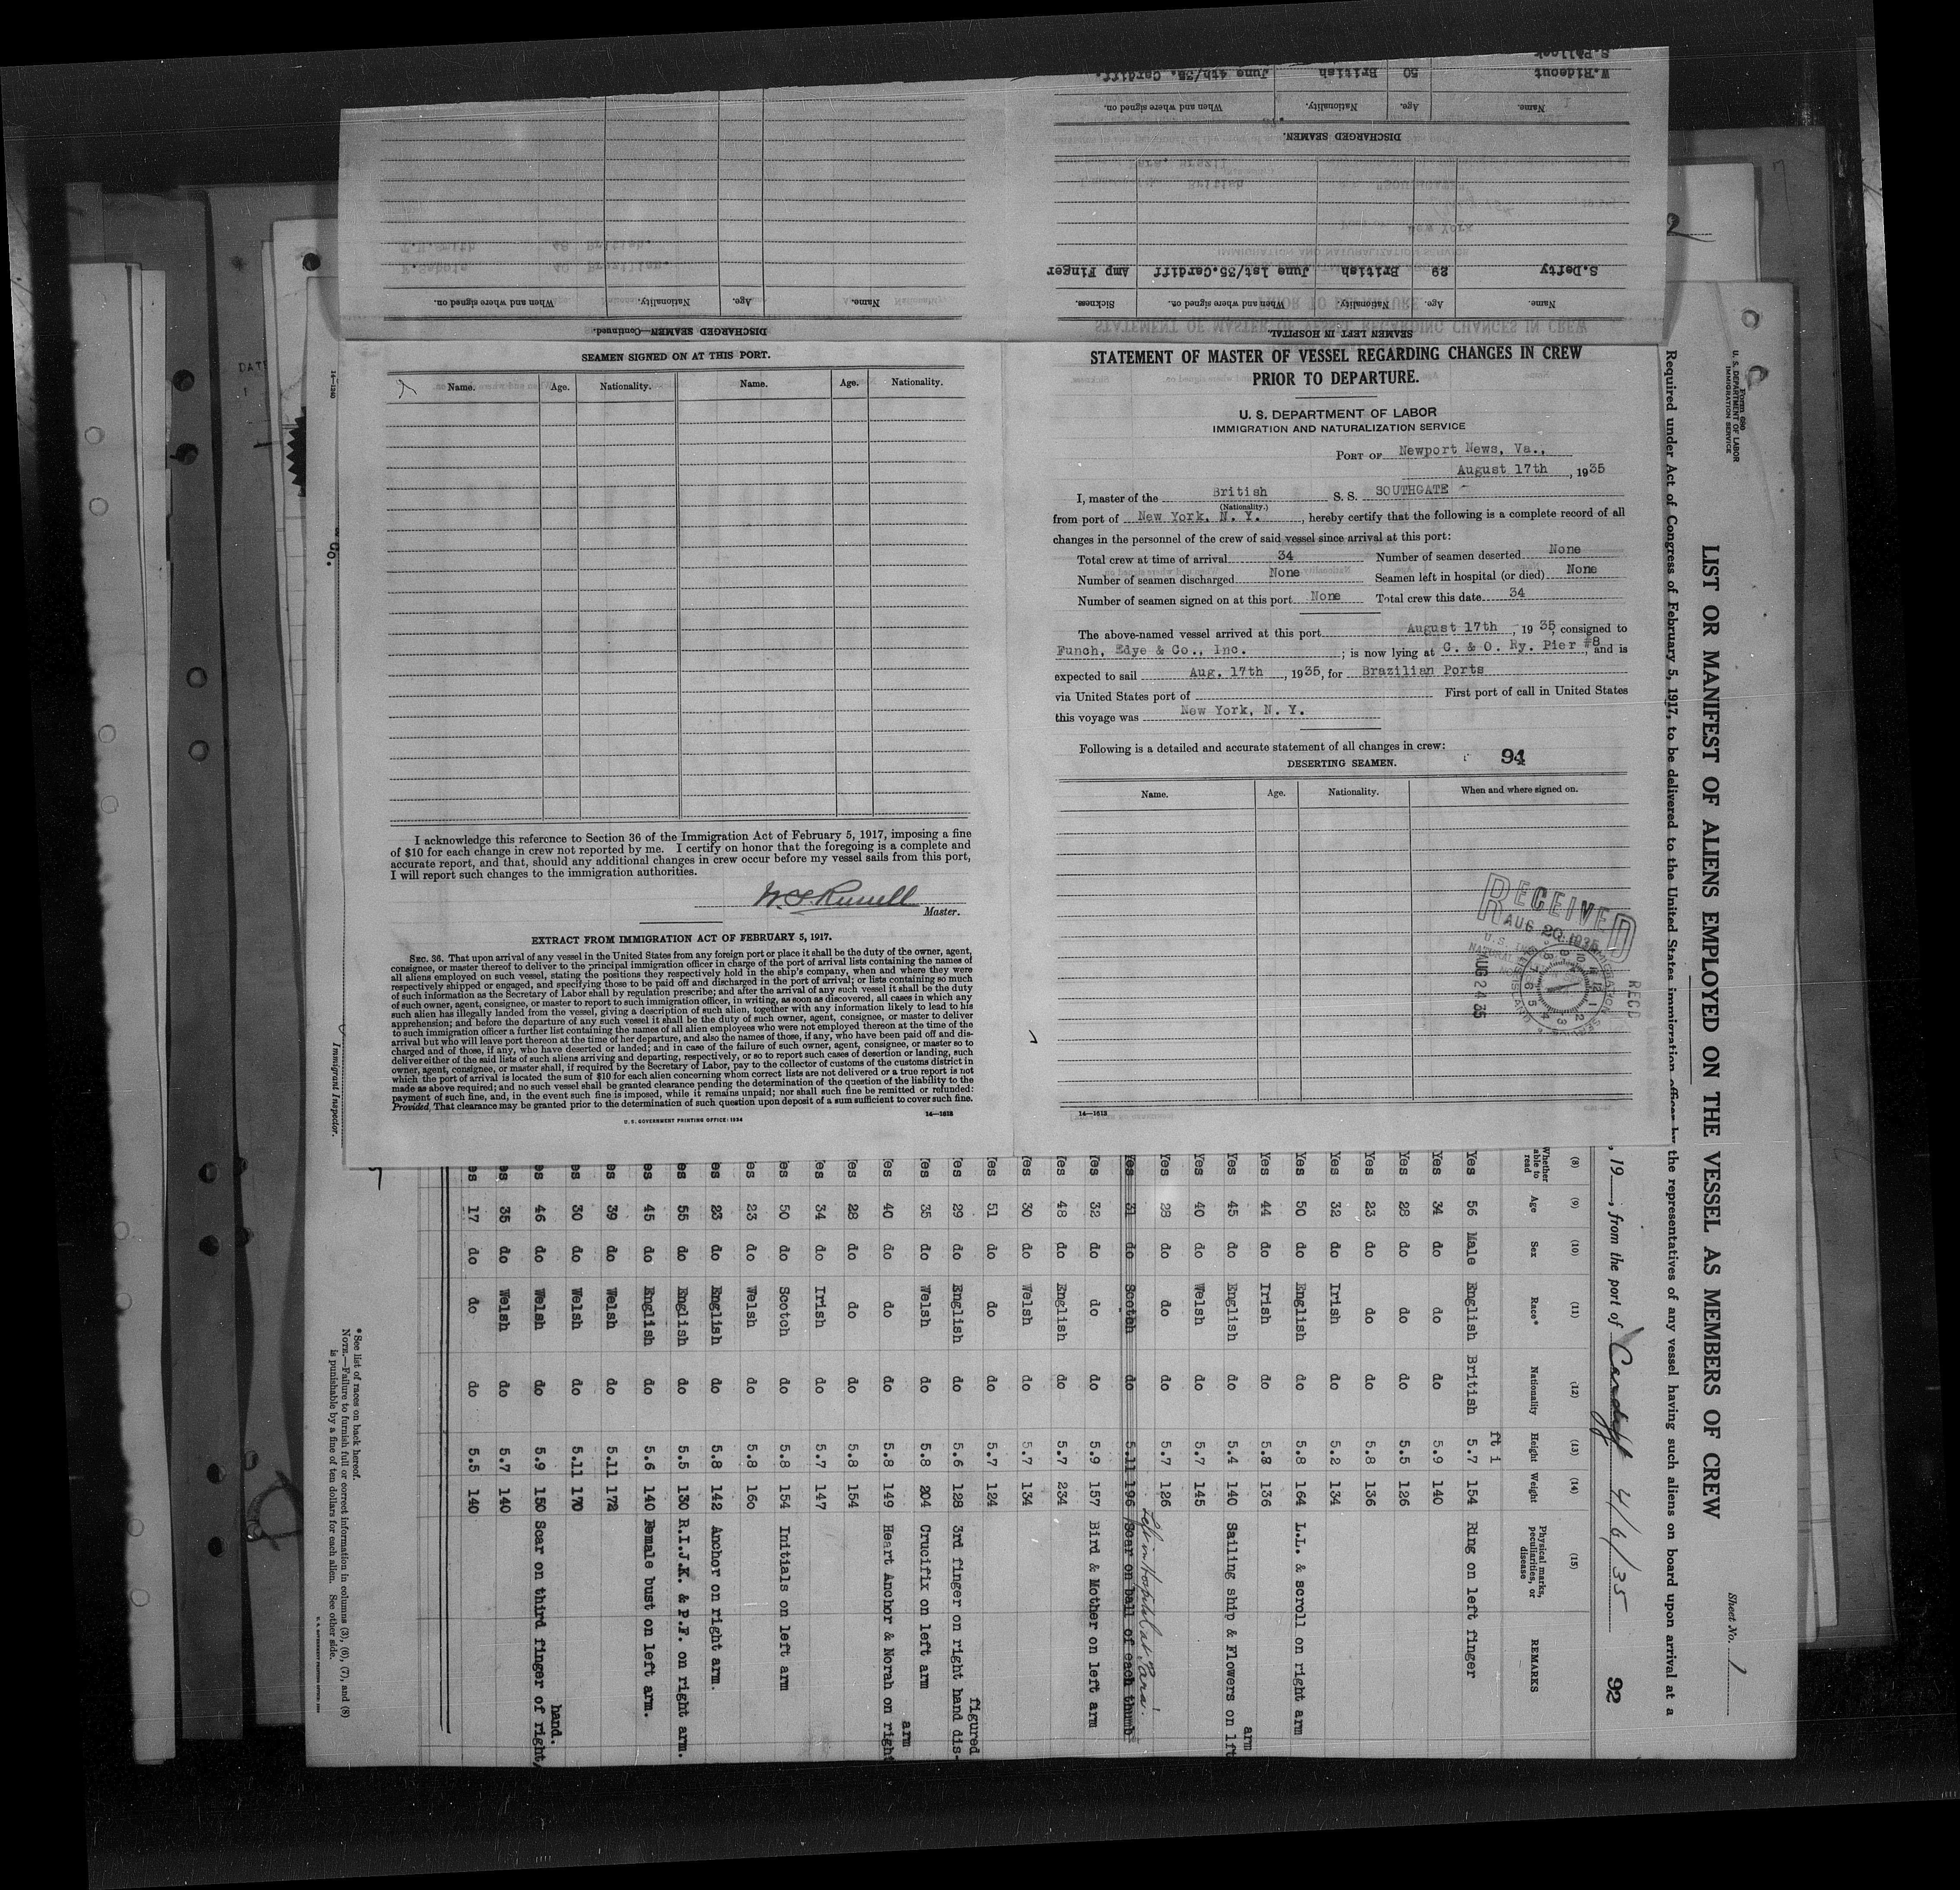 SEAMEN SIGNED ON AT THIS PORT.
Name. Age. Nationality. Name. Age. Nationality.
I acknowledge this reference to Section 36 of the Immigration Act of February 5, 1917, imposing a fine
of $10 for each change in crew not reported by me. I certify on honor that the foregoing is a complete and
accurate report, and that, should any additional changes in crew occur before my vessel sails from this port,
I will report such changes to the immigration authorities.
Master.
EXTRACT FROM IMMIGRATION ACT OF FEBRUARY 5, 1917.
SEC. 36. That upon arrival of any vessel in the United States from any foreign port or place it shall be the duty of the owner, agent,
consignee, or master thereof to deliver to the principal immigration officer in charge of the port of arrival lists containing the names of
all aliens employed on such vessel, stating the positions they respectively hold in the ship's company, when and where they were
respectively shipped or engaged, and specifying those to be paid off and discharged in the port of arrival; or lists containing so much
of such information as the Secretary of Labor shall by regulation prescribe; and after the arrival of any such vessel it shall be the duty
of such owner, agent, consignee, or master to report to such immigration officer, in writing, as soon as discovered, all cases in which any
such alien has illegally landed from the vessel, giving a description of such alien, together with any information likely to lead to his
apprehension; and before the departure of any such vessel it shall be the duty of such owner, agent, consignee, or master to deliver
to such immigration officer a further list containing the names of all alien employees who were not employed thereon at the time of the
arrival but who will leave port thereon at the time of her departure, and also the names of those, if any, who have been paid off and dis-
charged and of those, if any, who have deserted or landed; and in case of the failure of such owner, agent, consignee, or master so to
deliver either of the said lists of such aliens arriving and departing, respectively, or so to report such cases of desertion or landing, such
owner, agent, consignee, or master shall, if required by the Secretary of Labor, pay to the collector of customs of the customs district in
which the port of arrival is located the sum of $10 for each alien concerning whom correct lists are not delivered or a true report is not
made as above required; and no such vessel shall be granted clearance pending the determination of the question of the liability to the
payment of such fine, and, in the event such fine is imposed, while it remains unpaid; nor shall such fine be remitted or refunded:
Provided, That clearance may be granted prior to the determination of such question upon deposit of a sum sufficient to cover such fine.
U. S. GOVERNMENT PRINTING OFFICE: 1934 14—1613
STATEMENT OF MASTER OF VESSEL REGARDING CHANGES IN CREW
PRIOR TO DEPARTURE.
U. S. DEPARTMENT OF LABOR
IMMIGRATION AND NATURALIZATION SERVICE
PORT OF Newport News, Va.,
August 17th, 1935
I, master of the British S. S. SOUTHGATE
(Nationality.)
from port of New York, N. Y., hereby certify that the following is a complete record of all
changes in the personnel of the crew of said vessel since arrival at this port:
Total crew at time of arrival 34 Number of seamen deserted None
Number of seamen discharged None Seamen left in hospital (or died) None
Number of seamen signed on at this port None Total crew this date 34
The above-named vessel arrived at this port August 17th, 1935, consigned to
Funch, Edye & Co., Inc.; is now lying at C. & O. Ry. Pier #8, and is
expected to sail Aug. 17th, 1935, for Brazilian Ports
via United States port of First port of call in United States
this voyage was New York, N. Y.
Following is a detailed and accurate statement of all changes in crew: 94
DESERTING SEAMEN.
Name. Age. Nationality. When and where signed on.
RECEIVED
AUG 20 1935
AUG 24 35
REC'D
14—1613
SEAMEN LEFT IN HOSPITAL.
Name. Age. Nationality. When and where signed on. Sickness.
S.Defty 29 British June 1st/35.Cardiff Amp Finger
DISCHARGED SEAMEN.
Name. Age. Nationality. When and where signed on.
W.Rideout 50 British June 4th/35. Cardiff.
DISCHARGED SEAMEN—Continued.
Name. Age. Nationality. When and where signed on.
Form 680
U. S. DEPARTMENT OF LABOR
IMMIGRATION SERVICE
Sheet No. 1
LIST OR MANIFEST OF ALIENS EMPLOYED ON THE VESSEL AS MEMBERS OF CREW
Required under Act of Congress of February 5, 1917, to be delivered to the United States immigration officer by the representatives of any vessel having such aliens on board upon arrival at a
, 19 ; from the port of Cardiff 4/6/35 92
(8) (9) (10) (11) (12) (13) (14) (15)
Whether able to read Age Sex Race* Nationality Height Weight Physical marks, peculiarities, or disease REMARKS
ft i
Yes 56 Male English British 5.7 154 Ring on left finger
Yes 34 do do do 5.9 140
Yes 28 do do 5.5 126
Yes 23 do do 5.8 136
Yes 32 do Irish 5.2 134
Yes 50 do English do 5.8 164 L.L. & scroll on right arm
Yes 44 do Irish do 5.8 136
Yes 45 do English do 5.4 140 Sailing ship & Flowers on lft arm
Yes 40 do Welsh do 5.7 145
Yes 28 do do do 5.7 126
Left in Hospital at Para.
Yes 31 do Scotch do 5.11 196 Scar on ball of each thumb
Yes 32 do do do 5.9 157 Bird & Mother on left arm
Yes 48 do English do 5.7 234
Yes 30 do Welsh do 5.7 134
Yes 51 do do do 5.7 124
Yes 29 do English do 5.6 128 3rd finger on right hand dis-figured
Yes 35 do Welsh do 5.8 204 Crucifix on left arm
Yes 40 do do do 5.8 149 Heart Anchor & Norah on right arm
Yes 28 do do do 5.8 154
Yes 34 do Irish do 5.7 147
es 50 do Scotch do 5.8 154 Initials on left arm
es 23 do Welsh do 5.8 160
es 23 do English do 5.8 142 Anchor on right arm.
es 55 do English do 5.5 130 R.I.J.K. & P.F. on right arm.
es 45 do English do 5.6 140 Female bust on left arm.
es 39 do Welsh do 5.11 172
es 30 do Welsh do 5.11 170
es 46 do Welsh do 5.9 150 Scar on third finger of right hand.
es 35 do Welsh do 5.7 140
es 17 do do do 5.5 140
*See list of races on back hereof.
NOTE.—Failure to furnish full or correct information in columns (3), (6), (7), and (8)
is punishable by a fine of ten dollars for each alien. See other side.
14—1240
Co.
Immigrant Inspector.